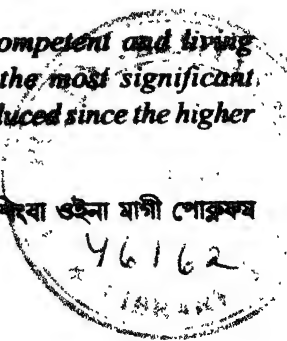 ompetent and living
the most significant
duced since the higher
ংবা ওইনা মাগী পোক্নফম
46162